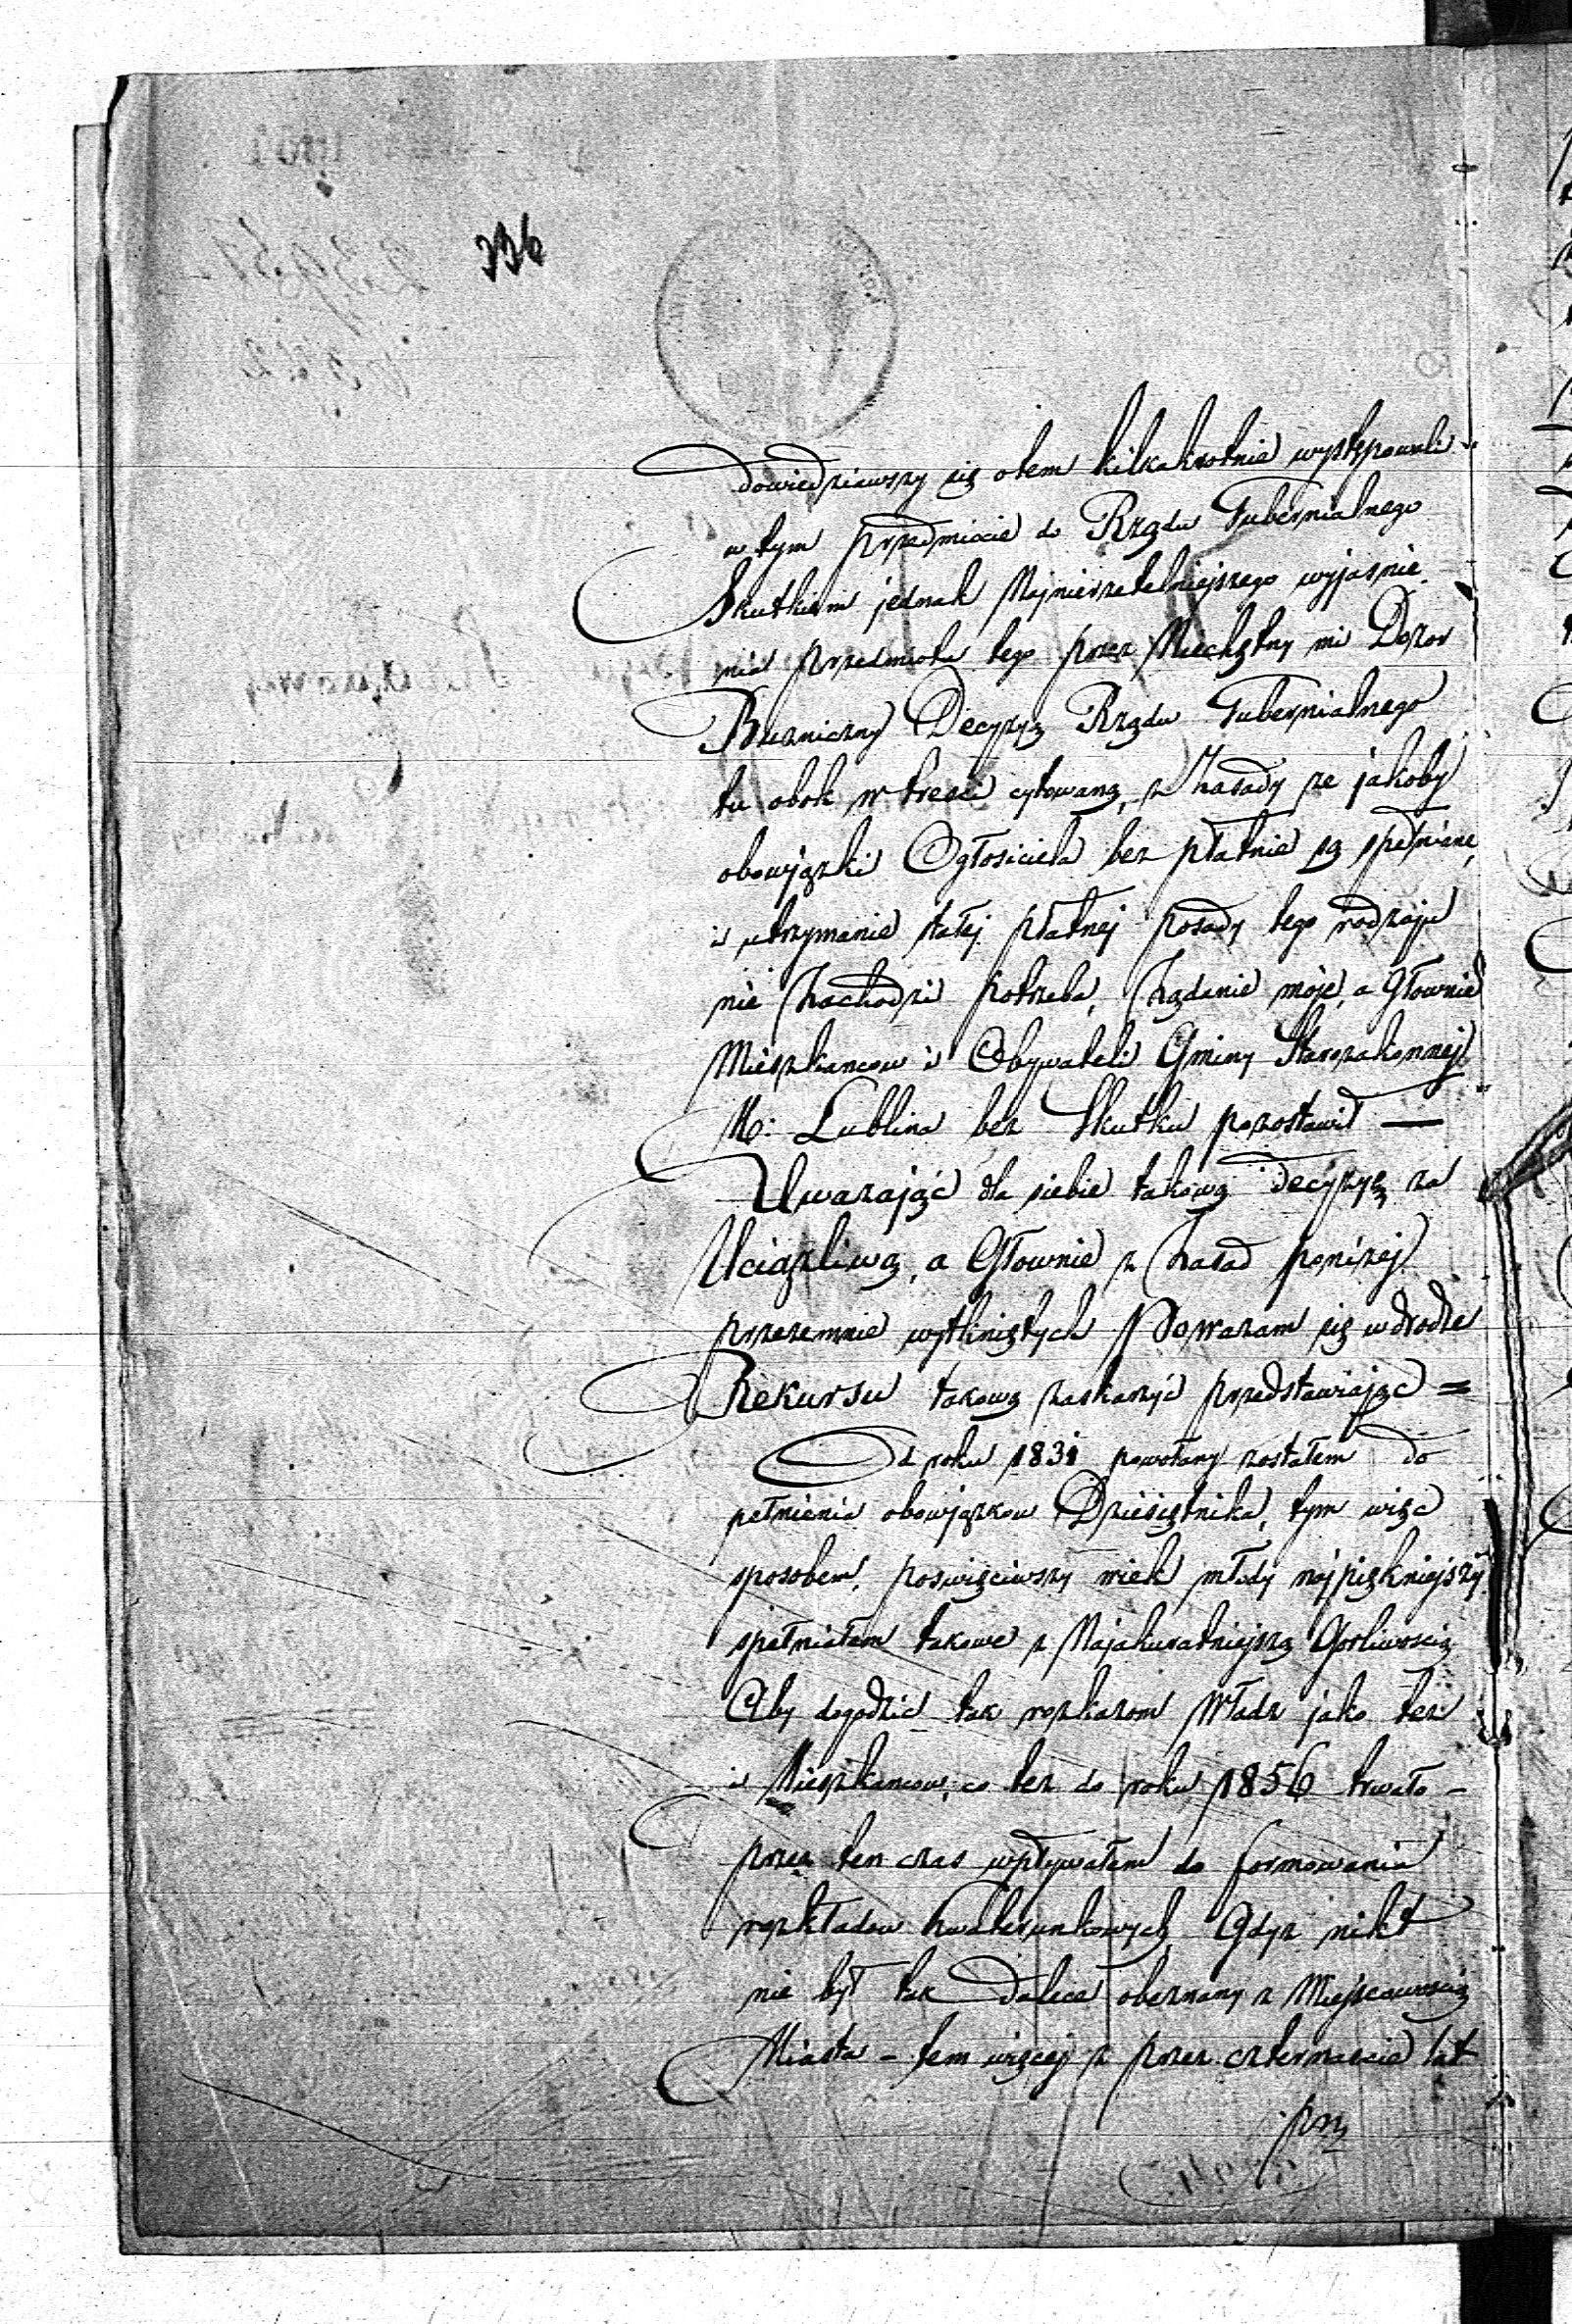 336
dowiedziawszy się otem kilkakrotnie występowali
w tym przedmiocie do Rządu Gubernialnego
Skutkiem jednak Najnierzetelniejszego wyjaśnie
nia przedmiotu tego przez Niechętny mi Dozor
Bużniczny Decyzyą Rządu Gubernialnego
tu obok w treści cytowaną, z Zasady że jakoby
obowiązki Ogłosiciela bez płatnie są spełniane,
i utrzymanie stałej płatnej posady tego rodzaju
nie Zachodzi potrzeba, Żądanie moje, a Głownie
Mieszkancow i Obywateli Gminy Starozakonnej
M: Lublina bez Skutku pozostawił —
Uwazając dla siebie takową Decyzyę za
Uciążliwą, a Głownie z Zasad poniżej
przezemnie wytkniętych Powazam się w drodze
Rekursu takową zaskarżyć przedstawiając =
Od roku 1831 powołany zostałem do
pełnienia obowiązkow Dziesiętnika, tym więc
sposobem, poswięciwszy wiek młody najpiękniejszy
spełniałem takowe z Najakuratniejszą Gorliwoscią
Aby dogodzić tak rozkazom Władz jako też
i Mieszkancow, co tez do roku 1856 trwało -
przez ten czas wpływałem do formowania
rozkładow kwaterunkowych Gdyż nikt
nie był tak Dalece obeznany z Miejscowoscią
Miasta - tem więcej z przez czternascie lat
prz